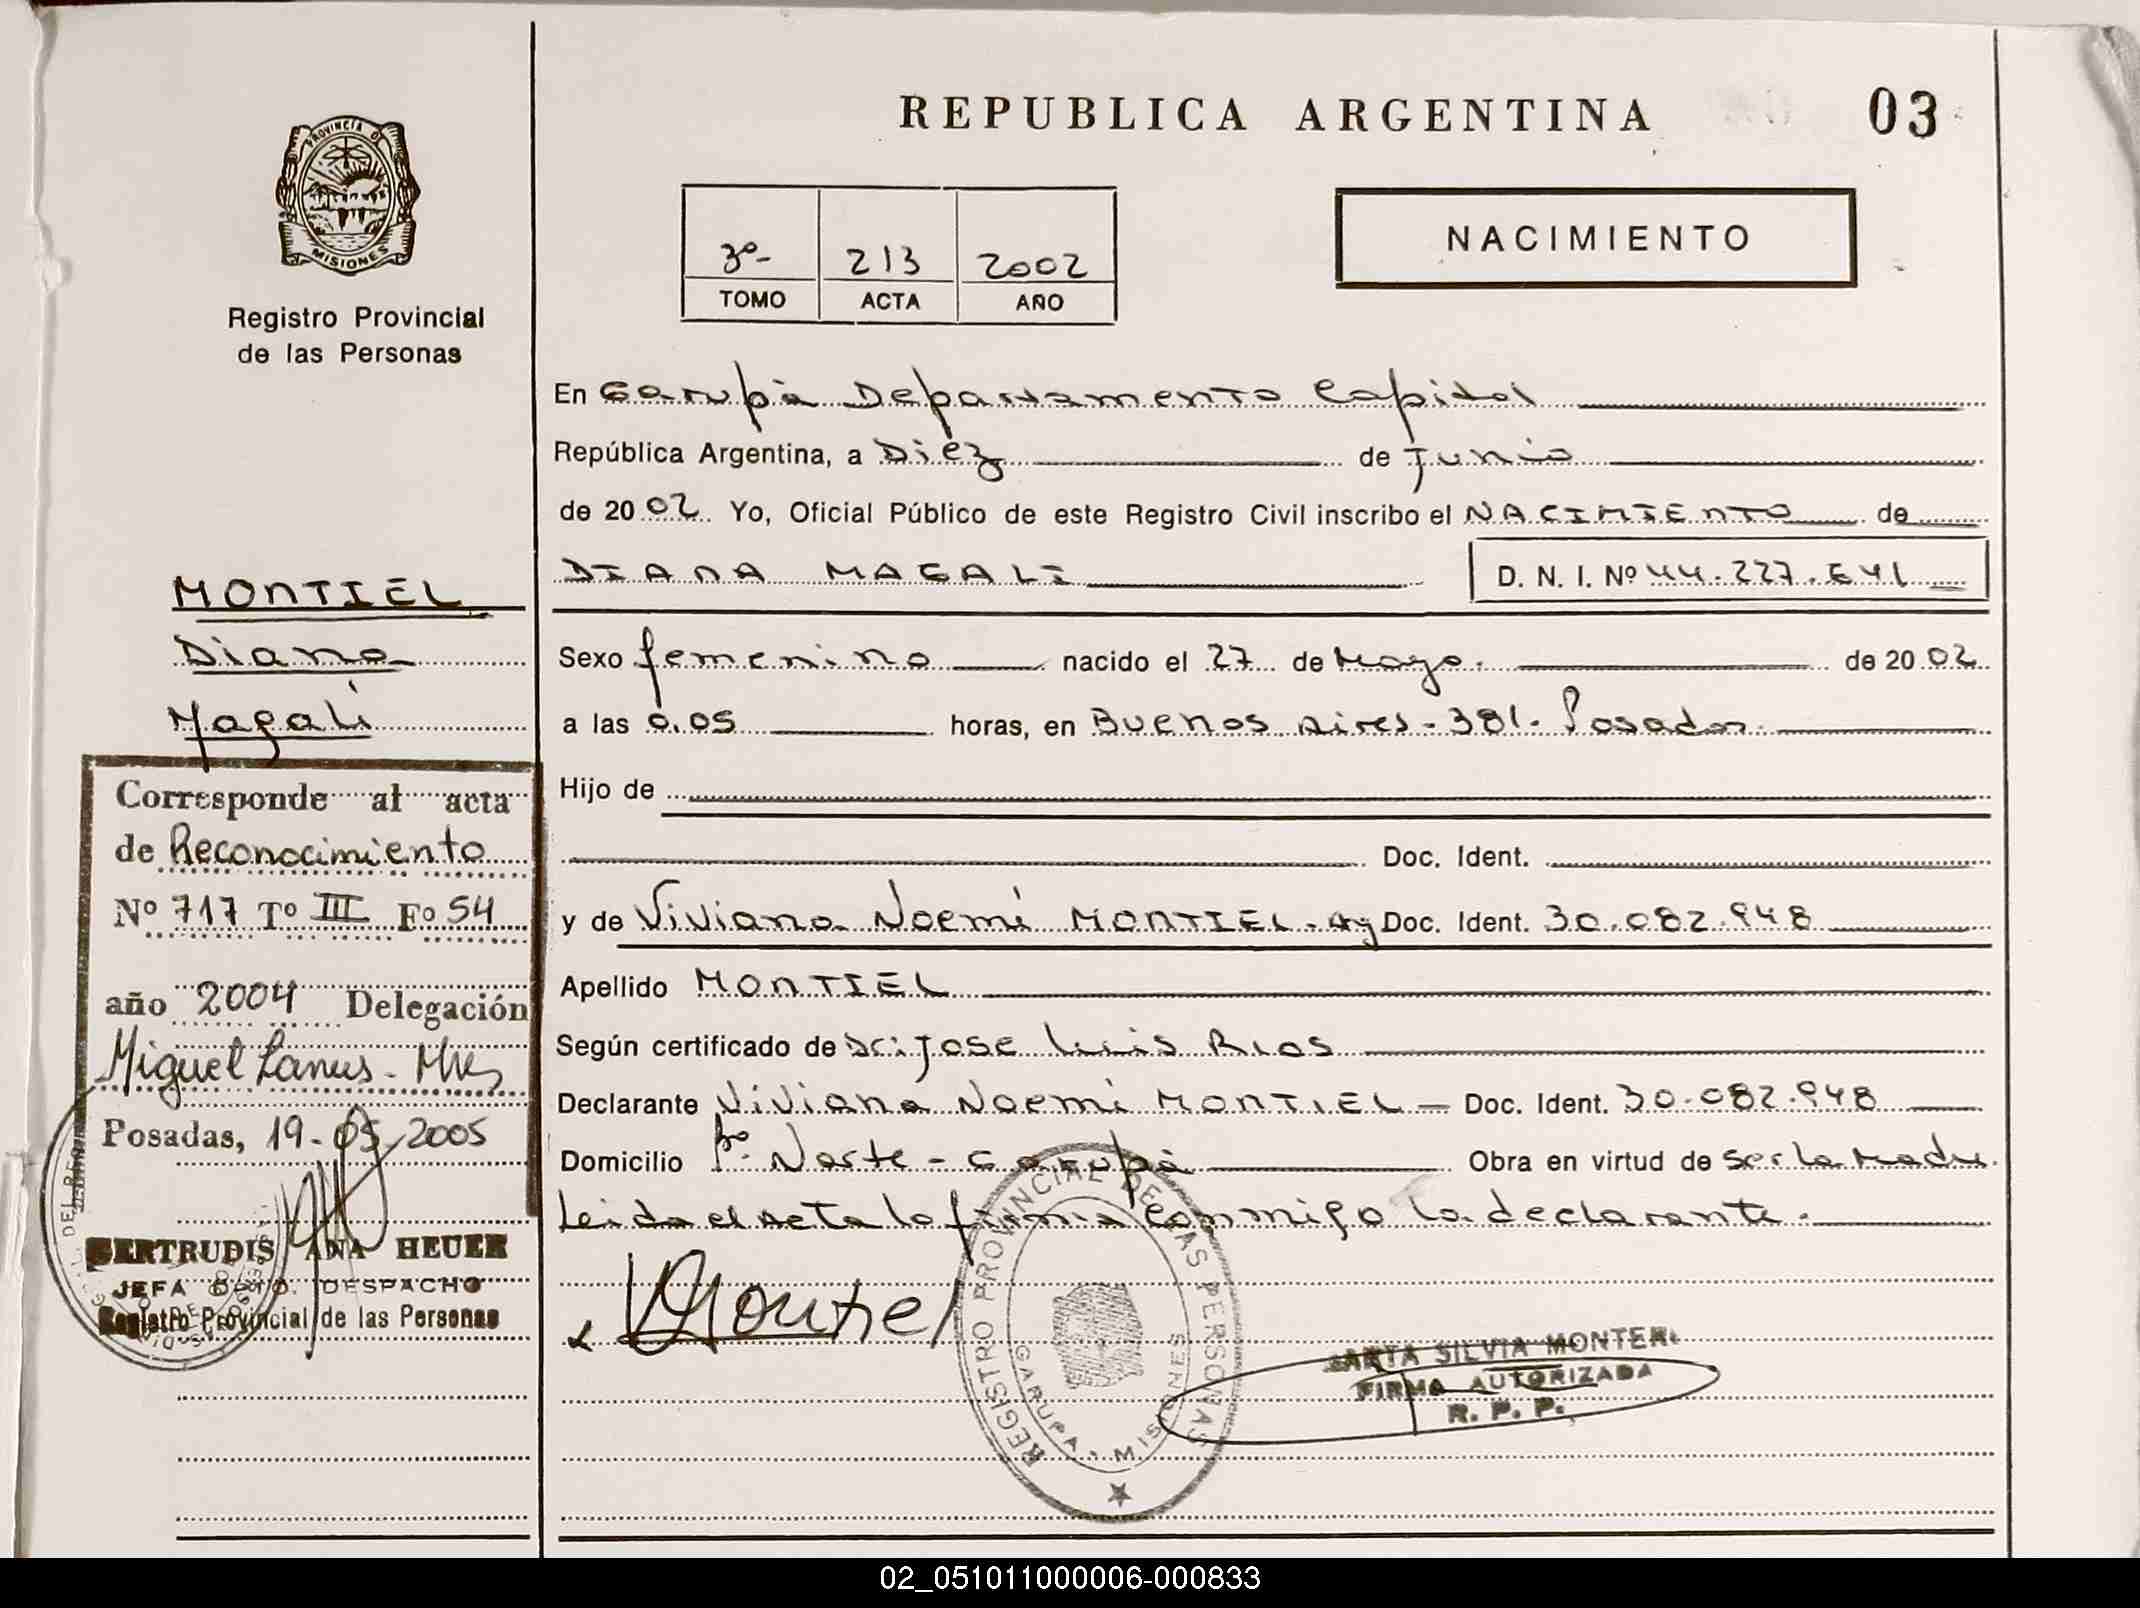 REPUBLICA ARGENTINA
03
PROVINCIA DE
MISIONES
Registro Provincial
de las Personas
3º-
213
2002
TOMO
ACTA
AÑO
NACIMIENTO
En Garupá Departamento Capital
República Argentina, a Diez de Junio
de 2002 Yo, Oficial Público de este Registro Civil inscribo el NACIMIENTO de
DIANA MAGALI
D. N. I. Nº 44.227.641
MONTIEL
Diana
Magalí
Sexo femenino nacido el 27 de Mayo. de 2002
a las 0.05 horas, en Buenos Aires - 381 - Posadas.
Hijo de
Doc. Ident.
y de Viviana Noemí MONTIEL - Ag Doc. Ident. 30.082.948
Apellido MONTIEL
Según certificado de Dr: Jose Luis Rios
Declarante Viviana Noemí MONTIEL - Doc. Ident. 30.082.948
Domicilio Bº. Norte - Garupá Obra en virtud de ser la Madre
Leida el acta la firma conmigo la declarante.
Corresponde al acta
de Reconocimiento
Nº 717 Tº III Fº 54
año 2004 Delegación
Miguel Lanus - Mnes
Posadas, 19-05-2005
GERTRUDIS ANA HEUER
JEFA DPTO. DESPACHO
Registro Provincial de las Personas
Montiel
REGISTRO PROVINCIAL DE LAS PERSONAS
GARUPA - MISIONES
SILVIA MONTER
FIRMA AUTORIZADA
R. P. P.
02_051011000006-000833